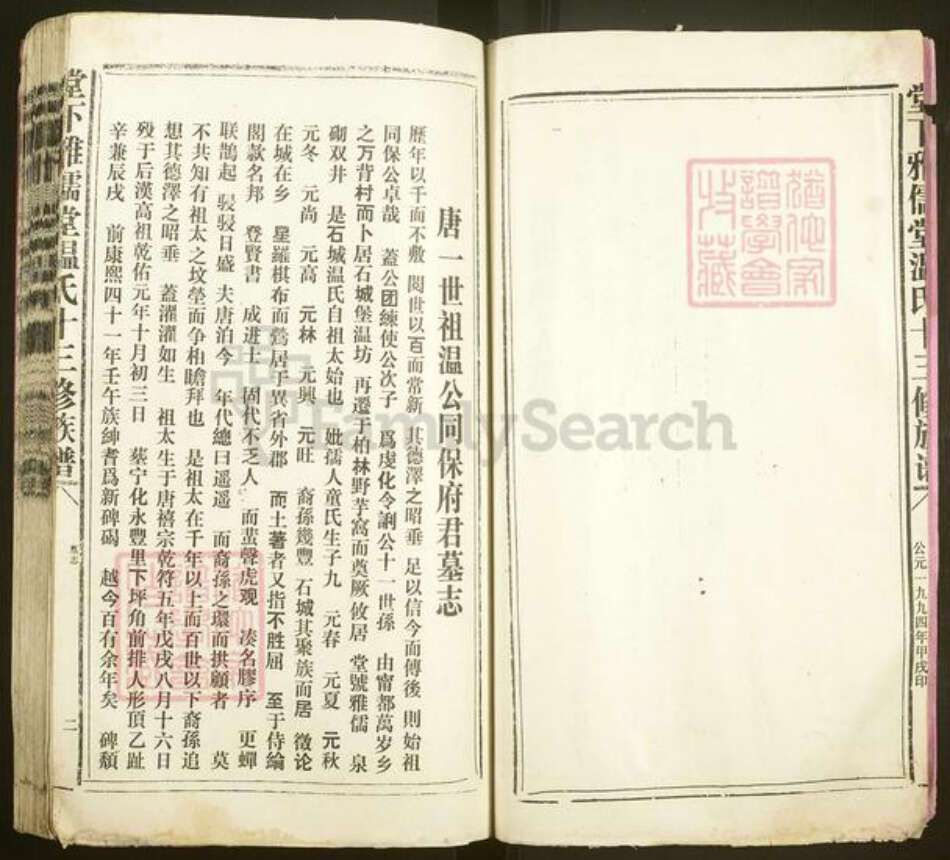 唐一世祖温公同保府君墓志
歷年以千而不敷　閱世以百而常新　其德澤之昭垂　足以信今而傳後　則始祖
同保公卓哉　蓋公团練使公次子　爲虔化令諭公十一世孫　由甯都萬岁乡
之万背村而卜居石城堡温坊　再遷于柏林野芋窩而奠厥攸居　堂號雅儒　泉
砌双井　是石城温氏自祖太始也　妣孺人童氏生子九　元春　元夏　元秋
元冬　元尚　元高　元林　元興　元旺　裔孫幾豐　石城其聚族而居　徵论
在城在乡　星羅棋布而鶯居于異省外郡　而土著者又指不胜屈　至于侍綸
閣款名邦　登賢書　成進士　固代不乏人　而蜚聲虎观　湊名膠序　更蟬
联鹊起　駸駸日盛　夫唐泊今　年代總曰遥遥　而裔孫之環而拱顧者　莫
不共知有祖太之坟塋而争相瞻拜也　是祖太在千年以上而百世以下裔孫追
想其德澤之昭垂　蓋濯濯如生　祖太生于唐禧宗乾符五年戊戌八月十六日
殁于后漢高祖乾佑元年十月初三日　葬宁化永豐里下坪角前排人形頂乙趾
辛兼辰戌　前康熙四十一年壬午族紳耆爲新碑碣　越今百有余年矣　碑頽
堂下雅儒堂温氏十三修族譜
墓志
二
堂下雅儒堂温氏十三修族谱
公元一九九四年甲戌印
猶他家譜學會收藏
FamilySearch